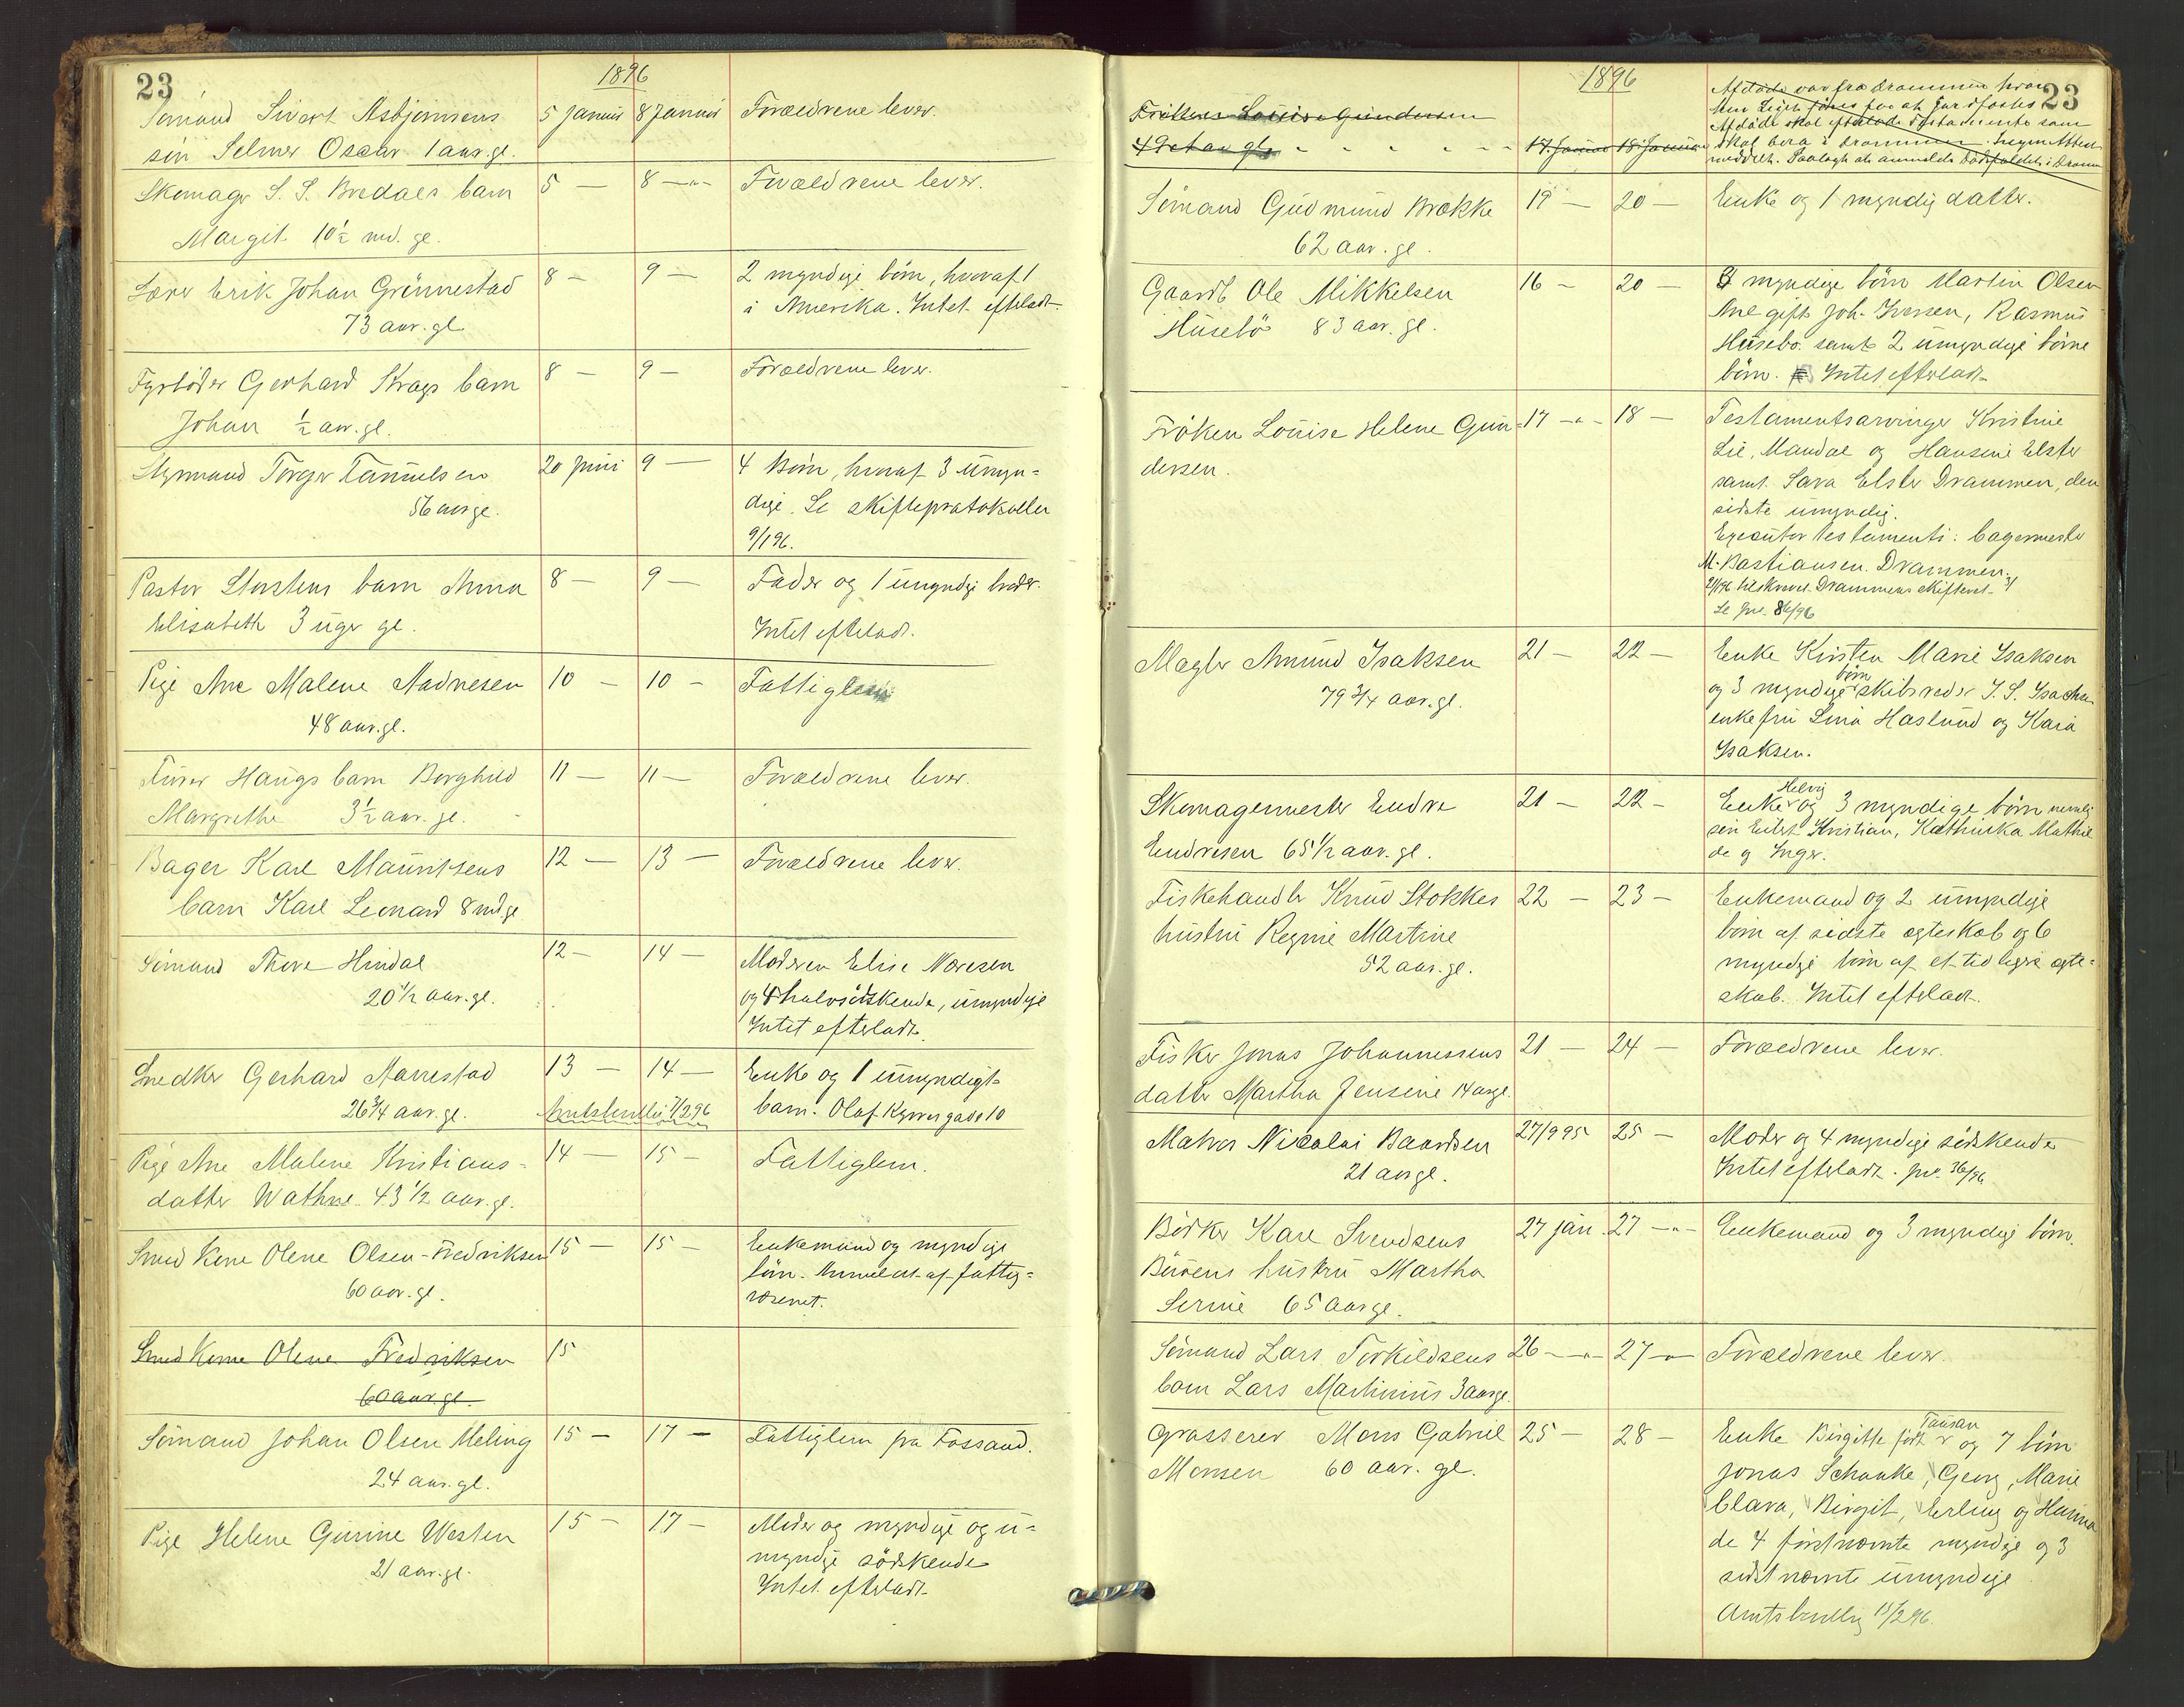 23
1896
Sømand Sivert Asbjørnsens
søn Selmer Oscar 1 aar.gl.
5 Januar
8 Januar
Forældrene lever.
Skomager S. S. Bredals barn
Margit 10½ md. gl.
5 —
8 —"—
Forældrene lever.
Lærer Erik Johan Grönnestad
73 aar.gl.
8 —
9 —
2 myndige børn, hvoraf 1
i Amerika. Intet efterladt.
Fyrbøder Gerhard Krags barn
Johan ½ aar.gl.
8 —
9 —
Forældrene lever.
Styrmand Torger Samuelsen
56 aar gl.
20 Juni
9 —
4 Børn, hvoraf 3 umyn=
dige. Se skifteprotokollen
9/1 96.
Pastor Storstens barn Anna
Elisabeth 3 uger gl.
8 —
9 —
Fader og 1 umyndig broder.
Intet efterladt.
Pige Ane Malene Aadnesen
48 aar.gl.
10 —
10 —
Fattiglem
Haugs barn Borghild
Margrethe 3½ aar. gl.
11 —
11 —
Forældrene lever.
Bager Karl Mauritsens
barn Karl Leonard 8 md gl
12 —
13 —
Forældrene lever.
Sømand Thore Hindal
20½ aar.gl.
12 —
14 —
Moderen Elise Næresen
og 4 halvsødskende, umyndige
Intet efterladt.
Snedker Gerhard Aarrestad
26¾ aar.gl.
13 —
14 —
Amtsbevilling 7/2 96
Enke og 1 umyndigt
barn. Olaf Kyrresgade 10
Pige Ane Malene Kristians=
datter Wathne. 43½ aar.gl.
14 —
15 —
Fattiglem.
Smed Kone Olene Olsen-Fredriksen
60 aar.gl.
15 —
15 —
Enkemand og myndige
børn. Anmeldt af fattig=
væsenet.
Smed Kone Olene Fredriksen
60 aar.gl.
15
Sømand Johan Olsen Meling
24 aar.gl.
15 —
17 —
Fattiglem fra Fossand.
Pige Helene Gurine Westen
21 aar.gl.
15 —
17 —
Moder og myndige og u=
myndige sødskende
Intet efterladt
23
1896
Frøken Louise Gundersen
17. Januar
18 Januar
Afdøde var fra Drammen hvor
Sømand Gudmund Brække
62 aar. gl.
19 —
20 —
Enke og 1 myndig datter.
Gaardb. Ole Mikkelsen
Husebø 83 aar. gl.
16 —
20 —
myndige børn Martin Olsen
Ane gift Joh. Iversen, Rasmus
Husebø samt 2 umyndige børne
børn. Intet efterladt
Frøken Louise Helene Gun=
dersen.
17 —"—
18 —
Testamentsarvinger Kristine
Lie, Mandal og Hansine Elster
samt Sara Elster Drammen, den
sidste umyndig.
Executor testamenti: bagermester
M. Bastiansen. Drammen.
21/1 96 tilskrevet Drammens skifteret
Se jnr. 86/96
Mægler Amund Isaksen
79 3/4 aar.gl.
21 —
22 —
Enke Kirsten Marie Isaksen
og 3 myndige børn skibsreder I. S. Isachsen
enkefru Lina Haslund og Kaia
Isaksen.
Skomagermester Endre
Endresen 65½ aar. gl.
21 —
22 —
Enke Helvig og 3 myndige børn nemlig
søn Eilert Kristian, Kathinka Mathil
de og Inger.
Fiskehandler Knud Stokkes
hustru Regine Martine
52 aar.gl.
22 —
23 —
Enkemand og 2 umyndige
børn af sidste ægteskab og 6
myndige børn af et tidligere ægte=
skab. Intet efterladt.
Fisker Jonas Johannessens
datter Martha Jensine 14 aargl.
21 —
24 —
Forældrene lever.
Matros Nicolai Baardsen
21 aar gl.
27/9 95
25 —
Moder og 4 myndige sødskende
Intet efterladt. jnr. 36/96
Bødker Karl Svendsens
hustru Martha
Serine 65 aar gl.
27 jan.
27 —"—
Enkemand og 3 myndige børn.
Sømand Lars Torkildsens
barn Lars Martinius 3 aar gl
26 —"—
27 —"—
Forældrene lever.
Grosserer Mons Gabriel
Monsen 60 aar. gl.
25 —
28 —
Enke Birgitte født Tausan og 7 børn
Jonas Schanke, Georg, Marie
Clara, Birgit, Erling og Hanna
de 4 førstnævnte myndige og 3
sidstnævnte umyndige
Amtsbevilling 15/2 96.